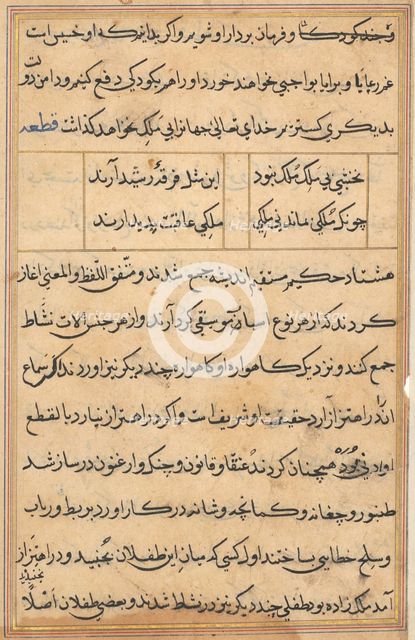 و چند کودک را و فرمان بردار او شویم و اگر بدانند که او خسیس است
عزر عایا و برایا بواجبی نخواهند خورد او را هم بکودکی دفع کنیم و دامن دولت
بدیگری کستریم خدای تعالی جهانرا بی ملک نخواهد گذاشت قطعه
نخشبی بی ملک ملک نبود این مثل فرقه رشید آرند
چونکه ملکی نماند بی ملکی ملکی عاقبت پدید آرند
هشتاد حکیم مستقیم اندیشه جمع شدند و متفق اللفظ و المعنی آغاز
کردند که از هر نوع اسباب موسیقی گرد آرند و از هر جنس آلات نشاط
جمع کنند و نزدیک گاهواره او گاهواره چند دیگر نیز آوردند اگر سماع
او را در اهتزاز آرد حقیقت او شریف است و اگر در اهتزاز نیارد بالقطع
او دنی بود همچنان کردند عنقا و قانون و چنگ و ارغنون در ساز شد
طنبور و چغانه و کمانچه و شانه در کار آورد بربط و رباب
و سلح خطایی بساختند اول کسی که میان این طفلان بجنبید و در اهتزاز
آمد ملک زاده بود طفلی چند دیگر نیز در نشاط شدند و بعضی طفلان اصلا
نجنبیدند
heritage
Heritage
Heritage
Heritage
C